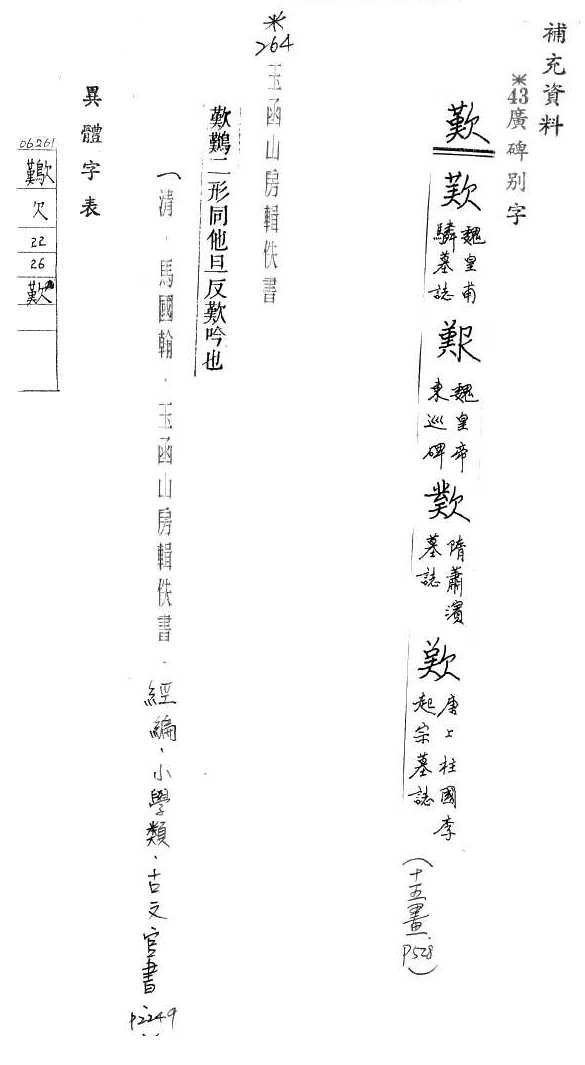 補充資料
※43廣碑別字
歎
歎 魏皇甫驎墓誌
艱 魏皇帝東巡碑
歎 隋蕭濱墓誌
歎 唐上柱國李起宗墓誌
(十五畫.P528)
※264
玉函山房輯佚書
歎鷜二形同他旦反歎吟也
(清.馬國翰.玉函山房輯佚書.經編.小學類.古文官書 P2249
異體字表
06261
欠
22
26
歎